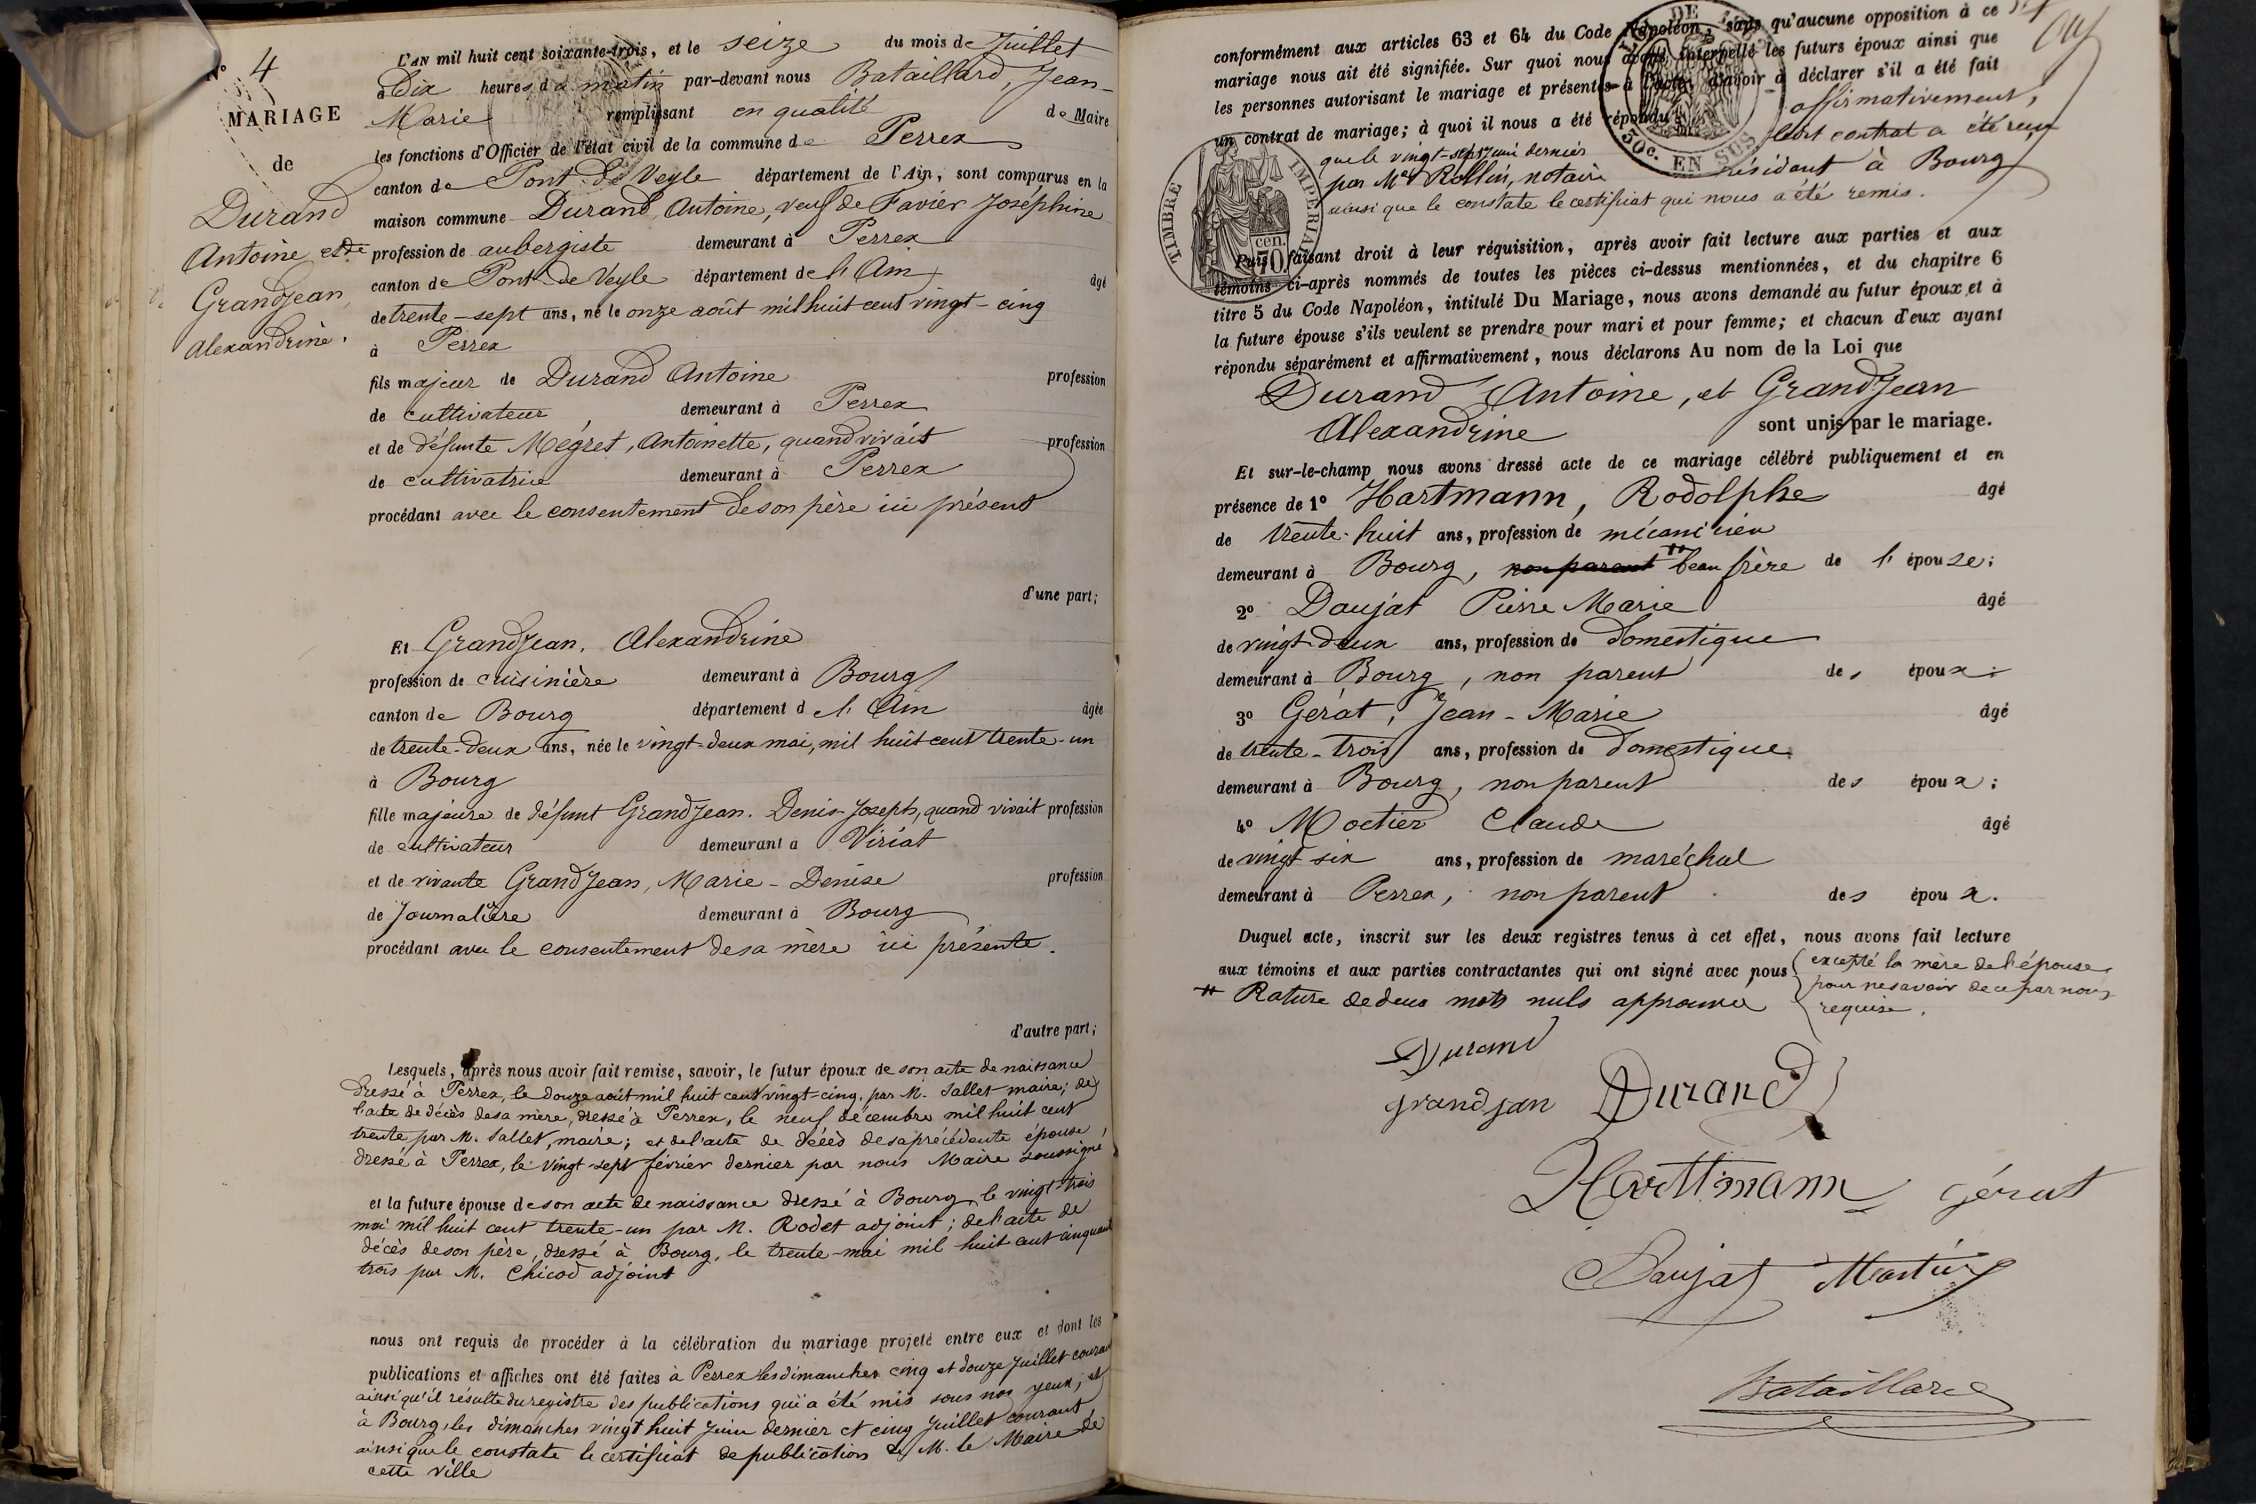 N° 4
MARIAGE
de
Durand
Antoine et de
Grandjean,
Alexandrine.
L'AN mil huit cent soixante-trois, et le seize du mois de Juillet
à Dix heures du matin par-devant nous Bataillard, Jean-
Marie remplissant en qualité de Maire
les fonctions d'Officier de l'état civil de la commune de Perrex
canton de Pont-de-Veyle département de l'Ain, sont comparus en la
maison commune Durand, Antoine, veuf de Favier Joséphine
profession de aubergiste demeurant à Perrex
canton de Pont-de-Veyle département de l'Ain, âgé
de trente-sept ans, né le onze août mil huit cent vingt-cinq
à Perrex
fils majeur de Durand Antoine profession
de cultivateur demeurant à Perrex
et de défunte Mégret, Antoinette, quand vivait profession
de cultivatrice demeurant à Perrex
procédant avec le consentement de son père ici présent
d'une part;
Et Grandjean, Alexandrine
profession de cuisinière demeurant à Bourg
canton de Bourg département de l'Ain âgée
de trente-deux ans, née le vingt-deux mai, mil huit cent trente-un
à Bourg
fille majeure de défunt Grandjean. Denis-Joseph, quand vivait profession
de cultivateur demeurant à Viriat
et de vivante Grandjean, Marie-Denise profession
de Journalière demeurant à Bourg
procédant avec le consentement de sa mère ici présente.
d'autre part;
Lesquels, après nous avoir fait remise, savoir, le futur époux de son acte de naissance
dressé à Perrex, le douze août mil huit cent vingt-cinq, par M. Sallet maire; de
l'acte de décès de sa mère, dressé à Perrex, le neuf décembre mil huit cent
trente par M. Sallet, maire; et de l'acte de décès de sa précédente épouse,
dressé à Perrex, le vingt-sept février dernier par nous Maire soussigné
et la future épouse de son acte de naissance dressé à Bourg le vingt-trois
mai mil huit cent trente-un par M. Rodet adjoint; de l'acte de
décès de son père, dressé à Bourg, le trente mai mil huit cent cinquante
trois par M. Chicod adjoint
nous ont requis de procéder à la célébration du mariage projeté entre eux et dont les
publications et affiches ont été faites à Perrex les dimanches cinq et douze Juillet courant
ainsi qu'il résulte du registre des publications qui a été mis sous nos yeux; et
à Bourg, les dimanches vingt huit Juin dernier et cinq Juillet courant
ainsi que le constate le certificat de publication de M. le Maire de
cette ville
conformément aux articles 63 et 64 du Code Napoléon, sans qu'aucune opposition à ce
mariage nous ait été signifiée. Sur quoi nous avons interpellé les futurs époux ainsi que
les personnes autorisant le mariage et présentes à l'acte, d'avoir à déclarer s'il a été fait
un contrat de mariage; à quoi il nous a été répondu affirmativement,
que le vingt-sept Juin dernier leur contrat a été reçu
par Me Rollin, notaire résidant à Bourg
ainsi que le constate le certificat qui nous a été remis.
DE
30c. EN SUS
TIMBRE IMPERIAL
70 cen.
Puis, faisant droit à leur réquisition, après avoir fait lecture aux parties et aux
témoins ci-après nommés de toutes les pièces ci-dessus mentionnées, et du chapitre 6
titre 5 du Code Napoléon, intitulé Du Mariage, nous avons demandé au futur époux et à
la future épouse s'ils veulent se prendre pour mari et pour femme; et chacun d'eux ayant
répondu séparément et affirmativement, nous déclarons Au nom de la Loi que
Durand Antoine, et Grandjean
Alexandrine sont unis par le mariage.
Et sur-le-champ nous avons dressé acte de ce mariage célébré publiquement et en
présence de 1° Hartmann, Rodolphe âgé
de trente-huit ans, profession de mécanicien
demeurant à Bourg, non parent beau frère de l'épouse;
2° Daujat Pierre Marie âgé
de vingt-deux ans, profession de domestique
demeurant à Bourg, non parent des époux;
3° Gérat, Jean-Marie âgé
de trente-trois ans, profession de domestique
demeurant à Bourg, non parent des époux;
4° Moctier Claude âgé
de vingt-six ans, profession de maréchal
demeurant à Perrex, non parent des époux.
Duquel acte, inscrit sur les deux registres tenus à cet effet, nous avons fait lecture
aux témoins et aux parties contractantes qui ont signé avec nous excepté la mère de l'épouse
pour ne savoir de ce par nous
requise.
Rature de deux mots nuls approuvée
Durand
grandjan Durand
Harttmann gérat
Daujat Martin
Bataillard